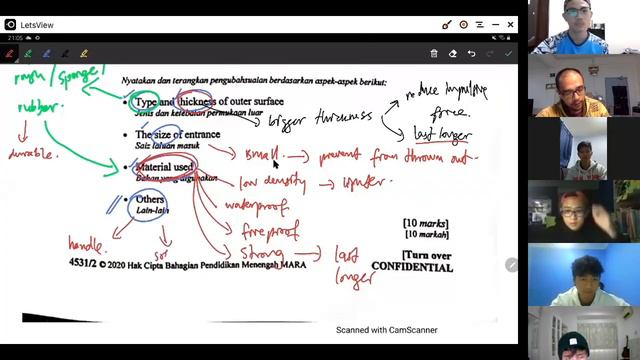 LetsView
21:05
Nyatakan dan terangkan pengubahsuaian berdasarkan aspek-aspek berikut:
rough / sponge /
rubber.
durable.
• Type and thickness of outer surface
Jenis dan ketebalan permukaan luar
bigger thickness
reduce impulsive
force.
last longer
• The size of entrance
Saiz laluan masuk
small. → prevent from thrown out.
• Material used
Bahan yang digunakan
low density → lighter.
waterproof
fireproof
strong → last
longer
• Others
Lain-lain
handle.
[10 marks]
[10 markah]
4531/2 © 2020 Hak Cipta Bahagian Pendidikan Menengah MARA
[Turn over
CONFIDENTIAL
Scanned with CamScanner